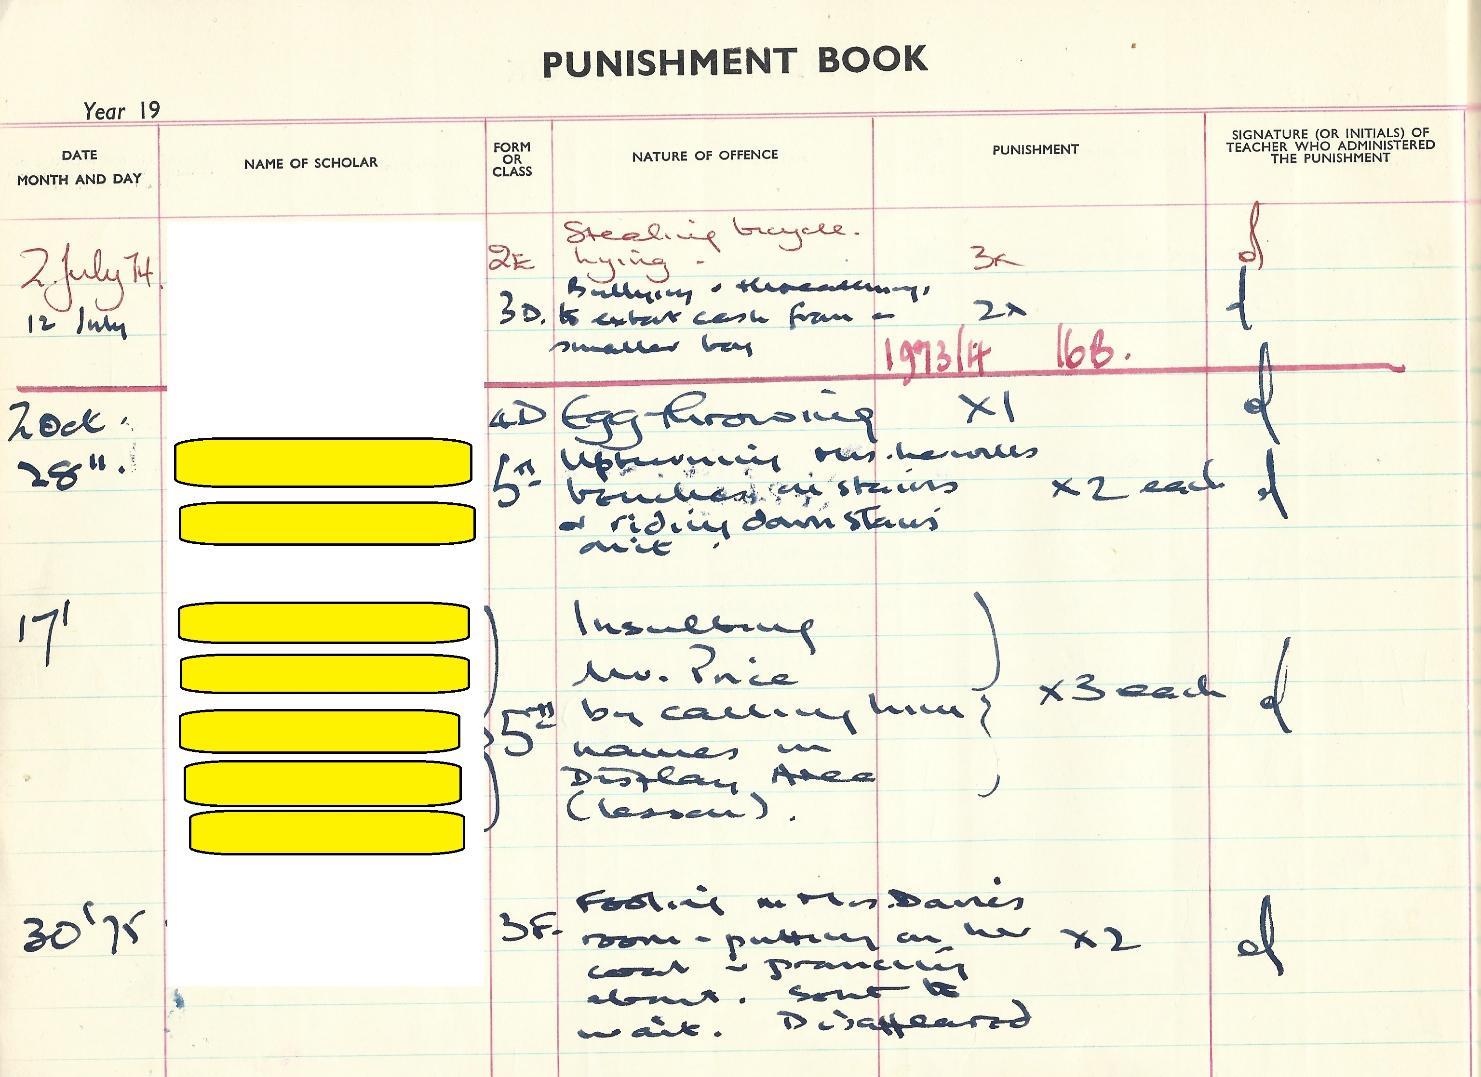 PUNISHMENT BOOK
Year 19
DATE
MONTH AND DAY
NAME OF SCHOLAR
FORM
OR
CLASS
NATURE OF OFFENCE
PUNISHMENT
SIGNATURE (OR INITIALS) OF
TEACHER WHO ADMINISTERED
THE PUNISHMENT
2 July 74.
2E
Stealing bicycle.
Lying.
3x
12 July
3D.
Bullying & threatening,
to extort cash from a
smaller boy
2x
1973/4 168.
2 Oct.
4D
Egg-throwing
X1
28".
5"
Upturning Mrs.
benches on stairs
& riding down stairs
on it.
x2 each
17'
5"
Insulting
Mr. Price
by calling him
names in
Display Area
(lesson).
x3 each
30' 75
3F.
Fooling in Mrs. Davies
room - putting on her
coat & prancing
about. Sent to
wait. Disappeared
x2